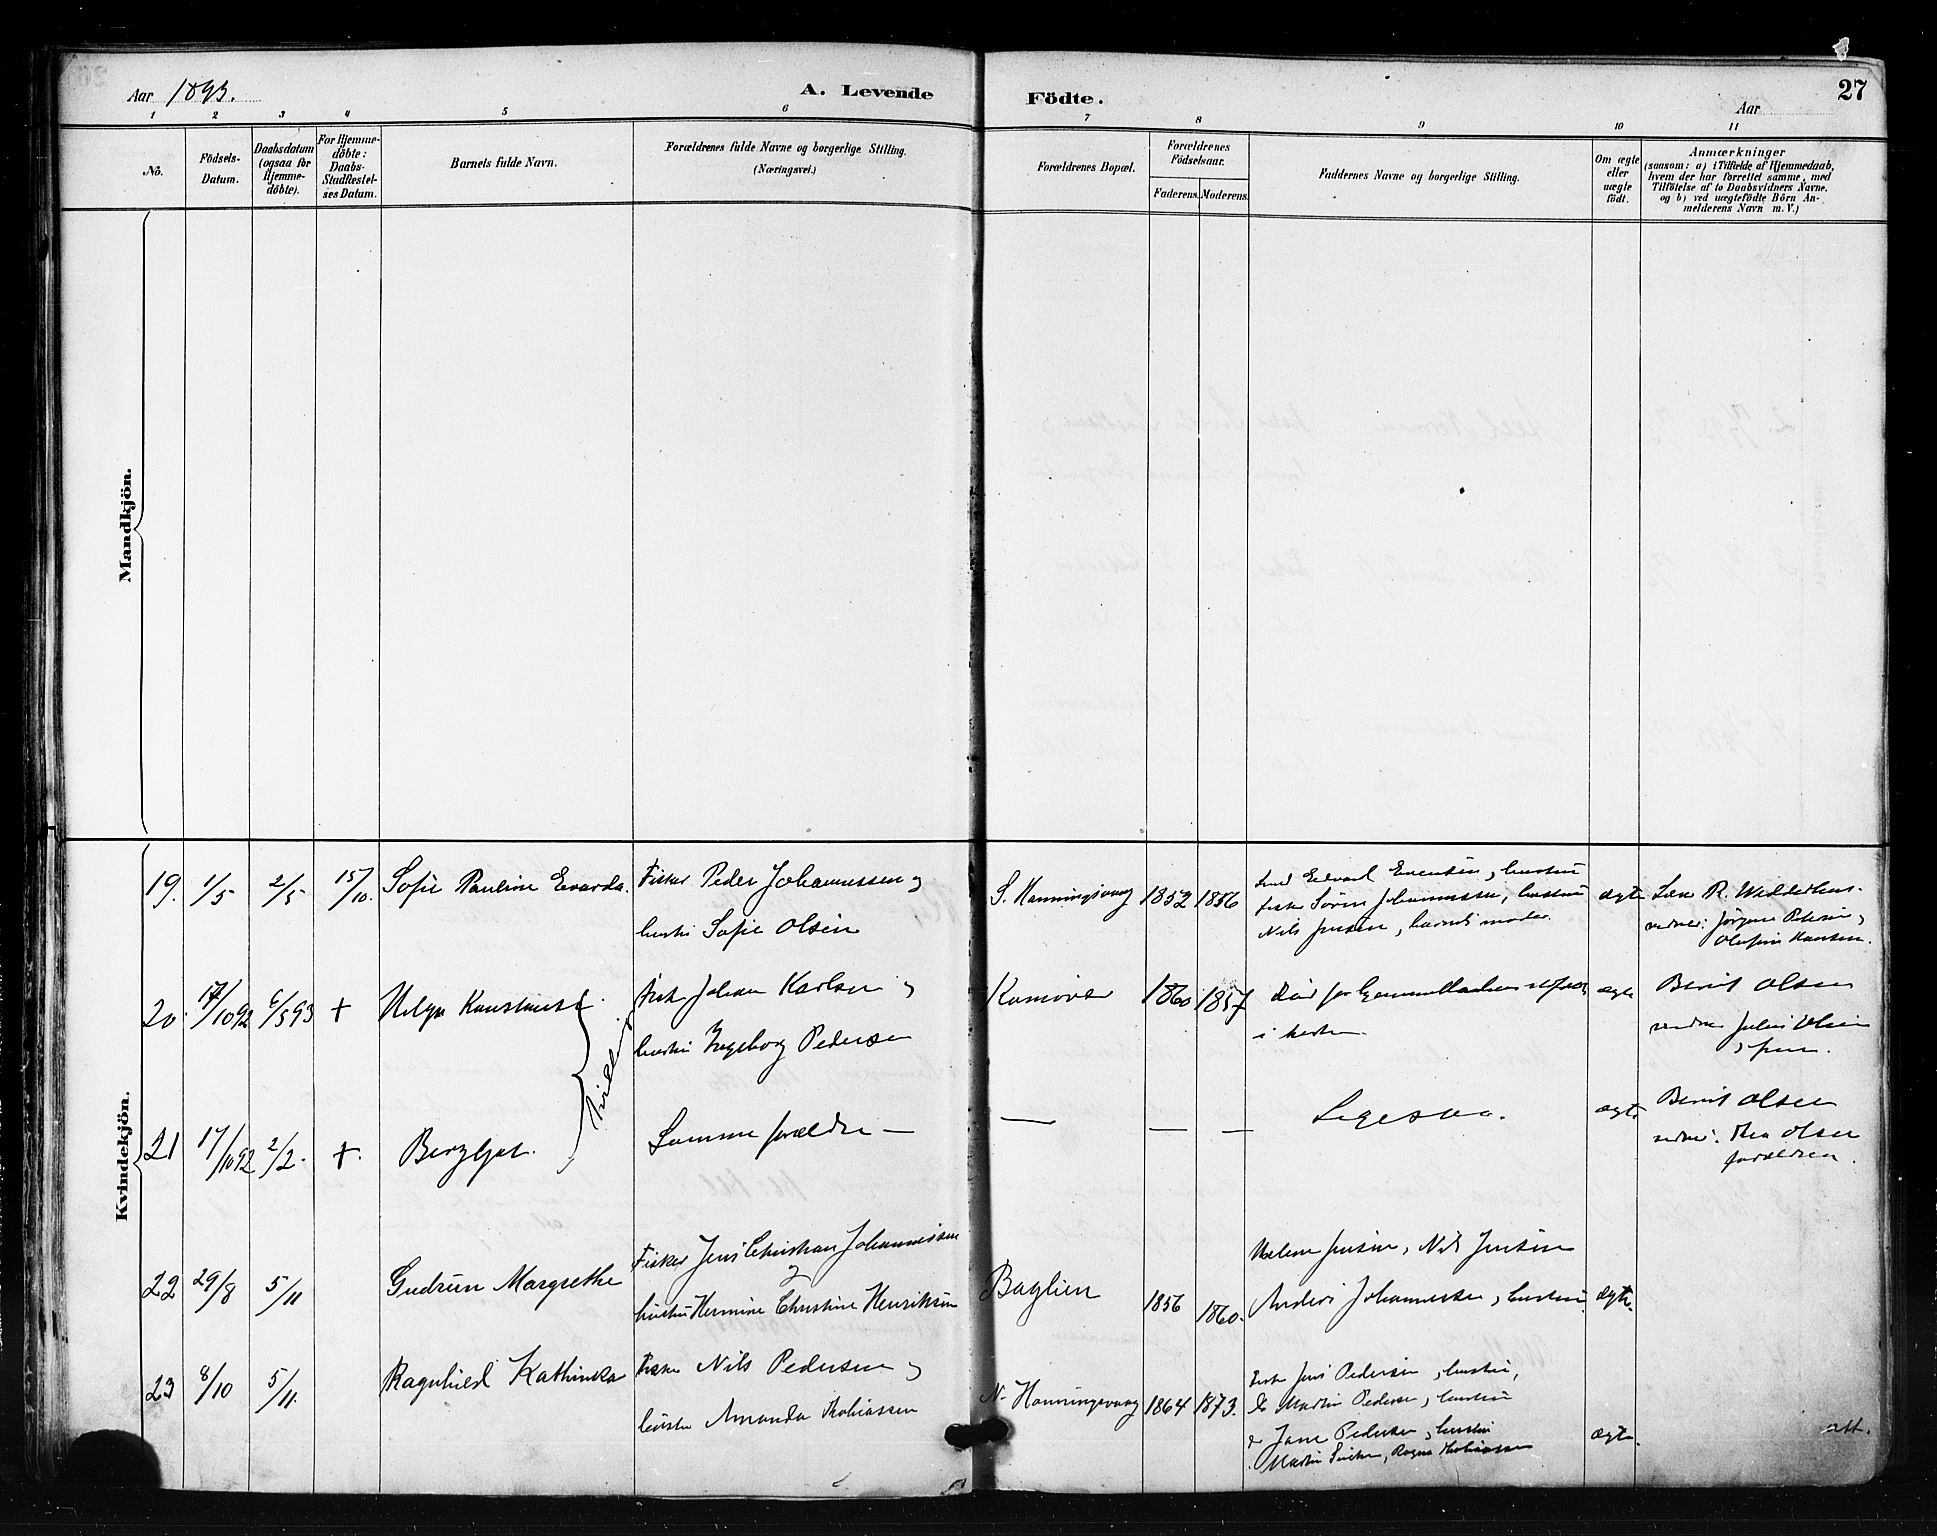 Aar 1893.
A. Levende
Födte.
Aar
27
1 2 3 4 5 6 7 8 9 10 11
No.
Födsels-
Datum.
Daabsdatum
(ogsaa for
Hjemme-
döbte).
For Hjemme-
döbte:
Daabs-
Stadfæstel-
ses Datum.
Barnets fulde Navn.
Forældrenes fulde Navne og borgerlige Stilling.
(Næringsvei.)
Forældrenes Bopæl.
Forældrenes
Födselsaar.
Faderens. Moderens.
Faddernes Navne og borgerlige Stilling.
Om ægte
eller
uægte
födt.
Anmærkninger
(saasom: a) i Tilfælde af Hjemmedaab,
hvem der har forrettet samme, med
Tilföielse af to Daabsvidners Navne.
og b) ved uægtefödte Börn An-
melderens Navn m. V.)
Mandkjön.
Kvindekjön.
19. 1/5 2/5 15/10. Sofie Pauline Evarda.
Fisker Peder Johannessen og
hustru Sofie Olsen
S. Honningsvaag 1852 1856
Edvard Evensen, hustru
fisker Sören Johannessen, hustru
Nils Jensen, barnets moder.
ægte
vidner: Jörgine Petersen,
Olufine Hansen.
20. 17/10 92 6/5 93 + Helga Konstanse
Fisker Johan Karlsen og
hustru Ingeborg Pedersen
Kamöver 1860 1857
i kirken.
ægte
Berit Olsen
vidner Julius Olsen
21 17/10 92 2/2. +. Bergljot.
Samme forældre —
— — —
Ligesaa.
ægte.
Berit Olsen
vidner. Thea Olsen
forældren.
22 29/8 5/11 Gudrun Margrethe
Fisker Jens Christian Johannessen
og
hustru Hermine Christine Henriksen
Baglien 1856 1860.
Helene Jensen, Nils Jensen
Anders Johannessen, hustru
ægte.
23 8/10 5/11. Ragnhild Kathinka
Fisker Nils Pedersen og
hustru Amanda Tobiassen
N. Honningsvaag 1864 1873.
Fisker Jens Pedersen, hustru,
Do Martin Pedersen, hustru
Do Jane Pedersen, hustru
Ragna Tobiassen
ægte.
att.